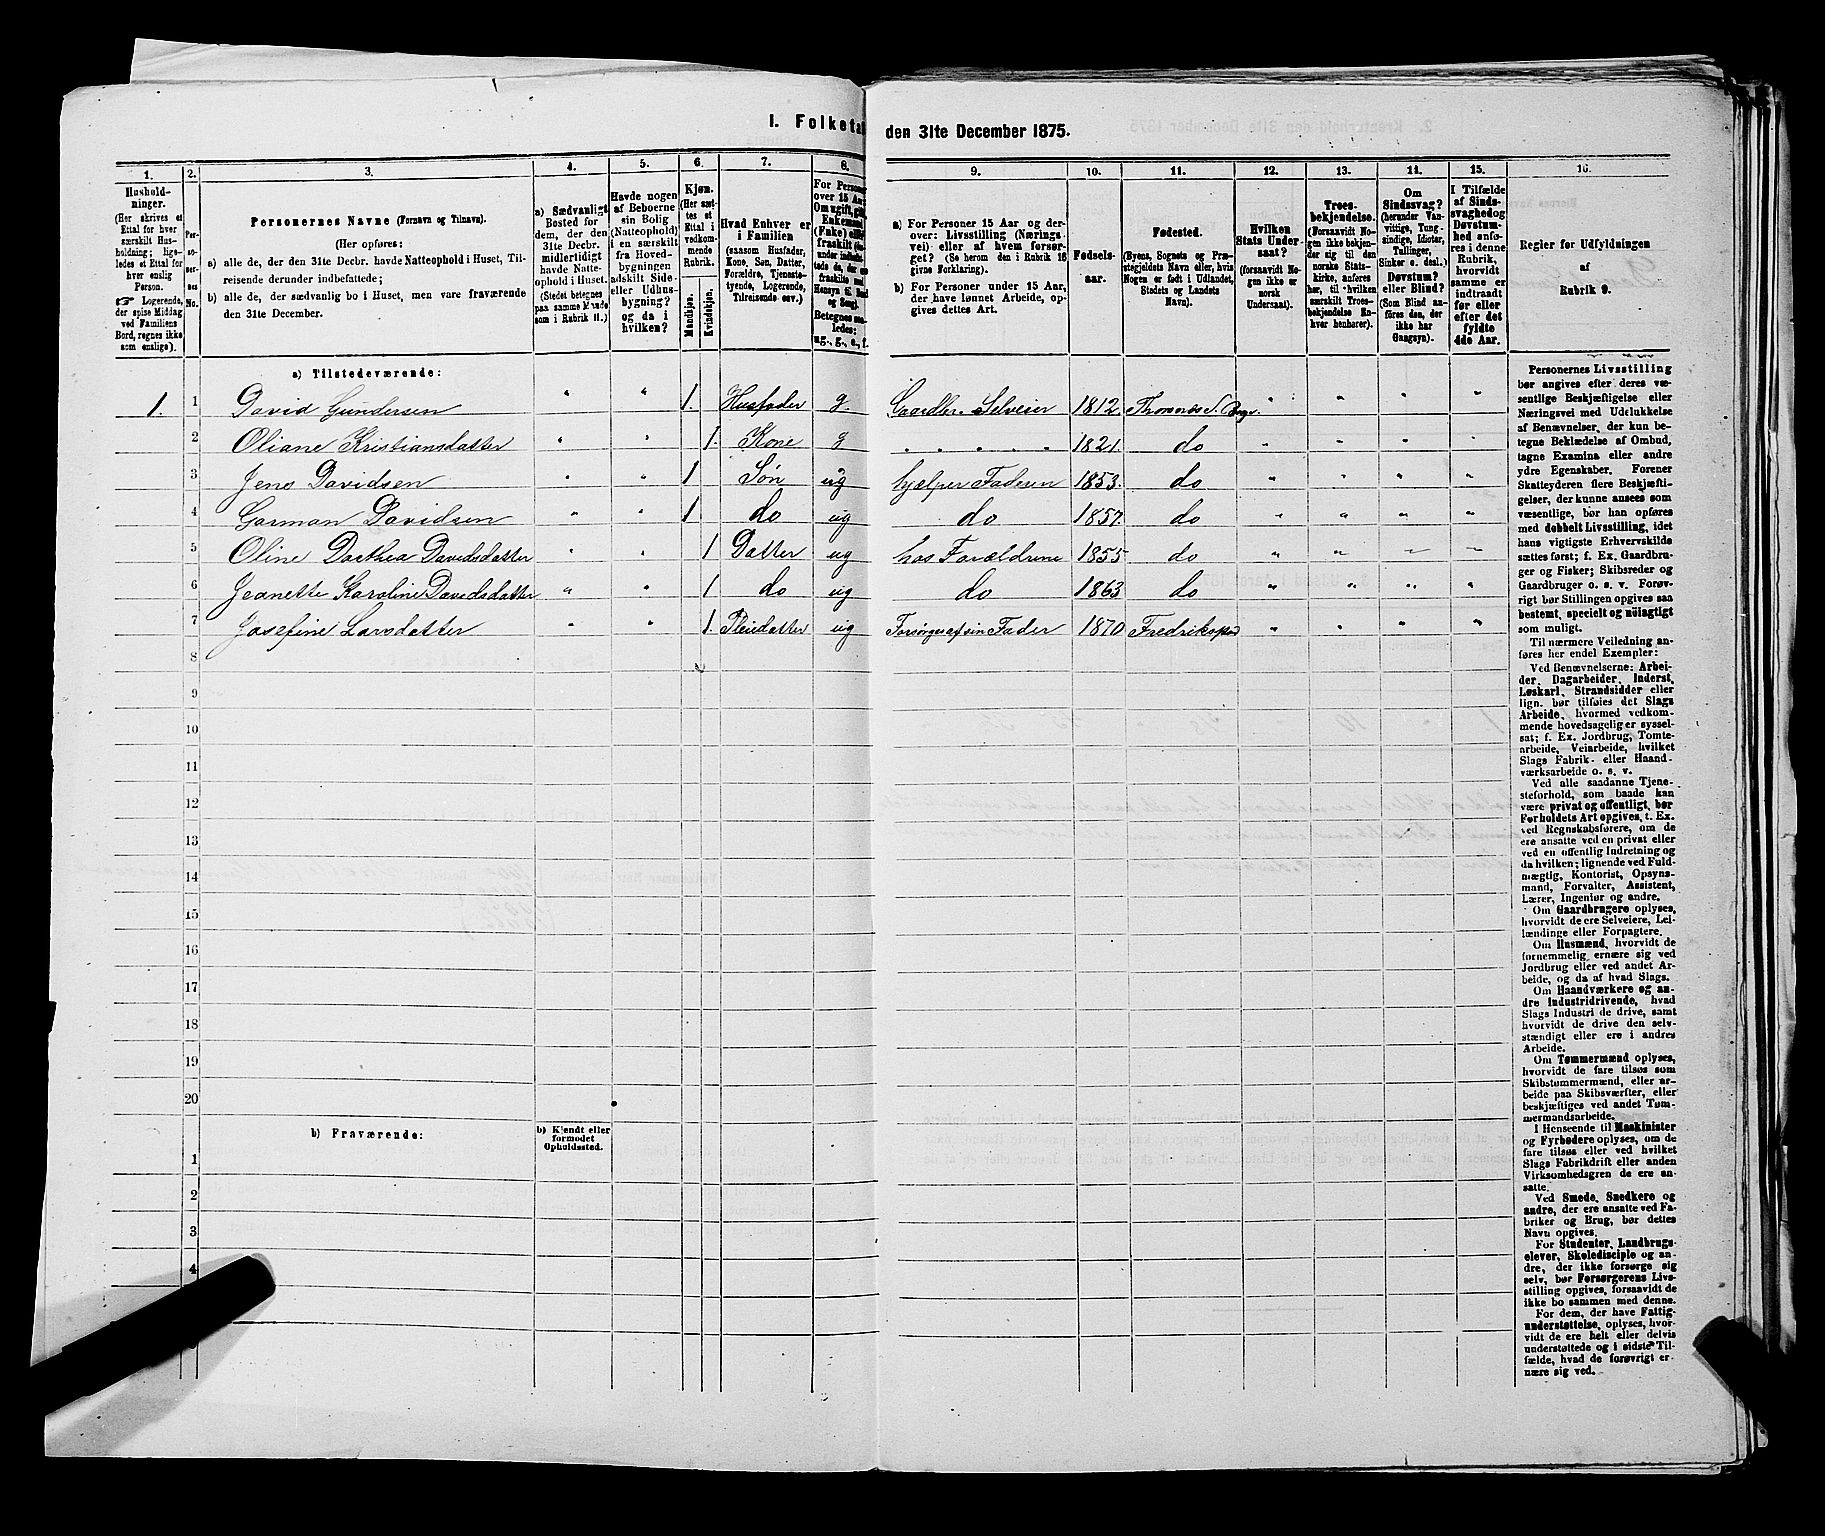 I. Folketal
den 31te December 1875.
1. 2. 3. 4. 5. 6. 7. 8. 9. 10. 11. 12. 13. 14. 15. 16.
Hushold-
ninger.
(Her skrives et
Ettal for hver
særskilt Hus-
holdning; lige-
ledes et Ettal for
hver enslig
Person.
☞ Logerende,
der spise Middag
ved Familiens
Bord, regnes ikke
som enslige).
Per-
so-
ner-
nes
No.
Personernes Navne (Fornavn og Tilnavn).
(Her opføres:
a) alle de, der den 31te Decbr. havde Natteophold i Huset, Til-
reisende derunder indbefattede;
b) alle de, der sædvanlig bo i Huset, men vare fraværende
den 31te December.
a) Sædvanligt
Bosted for
dem, der den
31te Decbr.
midlertidigt
havde Natte-
ophold i Huset.
(Stedet betegnes
paa samme Maade
som i Rubrik 11.)
Havde nogen
af Beboerne
sin Bolig
(Natteophold)
i en særskilt
fra Hoved-
bygningen
adskilt Side-
eller Udhus-
bygning?
og da i
hvilken?
Kjøn.
(Her sæt-
tes et
Ettal i
vedkom-
mende
Rubrik.
Mandkjøn.
Kvindekjøn.
Hvad Enhver er
i Familien
(saasom Husfader,
Kone, Søn, Datter,
Forældre, Tjeneste-
tyende, Logerende,
Tilreisende osv.)
For Persone
over 15 Aar
Om ugift, gift,
Enkemand
(Enke) eller
fraskilt
Betegnes saa-
ledes:
ug., g., e., f.
a) For Personer 15 Aar og der-
over: Livsstilling (Nærings
vei) eller af hvem forsør-
get? (Se herom den i Rubrik 16
givne Forklaring).
b) For Personer under 15 Aar,
der have lønnet Arbeide, op-
gives dettes Art.
Fødsels-
aar.
Fødested.
(Byens, Sognets og Præ-
stegjeldets Navn eller, hvis
Nogen er født i Udlandet,
Stedets og Landets
Navn).
Hvilken
Stats Under-
saat?
(forsaavidt No-
gen ikke er
norsk
Undersaat).
Troes-
bekjendelse.
(Forsaavidt No-
gen ikke bekjen-
der sig til den
norske Stats-
kirke, anføres
her, til hvilken
særskilt Troes-
bekjendelse En-
hver henhører).
Om
Sindssvag?
(herunder Van-
vittige, Tung-
sindige, Idioter,
Tullinger,
Sinker o. desl.)
Døvstum?
eller Blind?
(Som Blind an-
føres den, der
ikke har
Gangsyn).
I Tilfælde
af Sinds-
svaghed og
Døvstum-
hed anfø-
res i denne
Rubrik,
hvorvidt
samme er
indtraadt
før eller
efter det
fyldte
4de Aar.
Regler for Udfyldningen
af
Rubrik 9.
a) Tilstedeværende:
1. 1 David Gundersen " " 1. Husfader g. Gaardbr. Selveier 1812. Thomæs S. Berge. " " " "
2 Oliane Kristiansdatter " " 1. Kone g " " " " " 1821. do " " " "
3 Jens Davidsen " " 1 Søn ug hjælper Faderen 1853. do " " " "
4 Gorman Davidsen " " 1 do ug do 1857. do " " " "
5 Oline Dorthea Davidsdatter " " 1 Datter ug hos Forældrene 1855. do " " " "
6 Jeanette Karoline Davidsdatter " " 1 do ug do 1863 do " " " "
7 Josefine Larsdatter " " 1. Pleiedatter ug Forsørges af sin Fader 1870 Fredrikstad " " " "
8
9
10
11
12
13
14
15
16
17
18
19
20
b) Fraværende:
b) Kjendt eller
formodet
Opholdssted.
1
2
3
4
Personernes Livsstilling
bør angives efter deres væ-
sentlige Beskjæftigelse eller
Næringsvei med Udelukkelse
af Benævnelser, der kun be-
tegne Beklædelse af Ombud,
tagne Examina eller andre
ydre Egenskaber. Forener
Skatteyderen flere Beskjæfti-
gelser, der kunne ansees som
væsentlige, bør han opføres
med dobbelt Livsstilling, idet
hans vigtigste Erhvervskilde
sættes først; f. Ex. Gaardbru-
ger og Fisker; Skibsreder og
Gaardbruger o. s. v. Forøv-
rigt bør Stillingen opgives saa
bestemt, specielt og nøiagtigt
som muligt.
Til nærmere Veiledning an-
føres her endel Exempler:
Ved Benævnelserne: Arbei-
der, Dagarbeider, Inderst,
Løskarl, Strandsidder eller
lign. bør tilføies det Slags
Arbeide, hvormed vedkom-
mende hovedsagelig er syssel-
sat; f. Ex. Jordbrug, Tomte-
arbeide, Veiarbeide, hvilket
Slags Fabrik- eller Haand-
værksarbeide o. s. v.
Ved alle saadanne Tjene-
steforhold, som baade kan
være privat og offentligt, bør
Forholdets Art opgives, t. Ex.
ved Regnskabsførere, om de
ere ansatte ved en privat eller
ved en offentlig Indretning og
da hvilken; lignende ved Fuld-
mægtig, Kontorist, Opsyns-
mand, Forvalter, Assistent,
Lærer, Ingeniør og andre.
Om Gaardbrugere oplyses,
hvorvidt de ere Selveiere, Lei-
lændinge eller Forpagtere.
Om Husmænd, hvorvidt de
fornemmelig ernære sig ved
Jordbrug eller ved andet Ar-
beide, og da af hvad Slags.
Om Haandværkere og an-
dre Industridrivende, hvad
Slags Industri de drive, samt
hvorvidt de drive den selv-
stændigt eller ere i andres
Arbeide.
Om Tømmermænd oplyses,
hvorvidt de fare tilsøs som
Skibstømmermænd, eller ar-
beide paa Skibsværfter, eller
beskjæftiges ved andet Tøm-
mermandsarbeide.
I Henseende til Maskinister
og Fyrbødere oplyses, om de
fare tilsøs eller ved hvilket
Slags Fabrikdrift eller anden
Virksomhedsgren de ere an-
satte.
Ved Smede, Snedkere og
andre, der ere ansatte ved Fa-
briker og Brug, bør dettes
Navn opgives.
For Studenter, Landbrugs-
elever, Skoledisciple og an-
dre, der ikke forsørge sig
selv, bør Forsørgerens Livs-
stilling opgives, forsaavidt de
ikke bo sammen med denne.
For dem, der have Fattig-
understøttelse, oplyses, hvor-
vidt de ere helt eller delvis
understøttede og i sidste Til-
fælde, hvad de forøvrigt er-
nære sig ved.